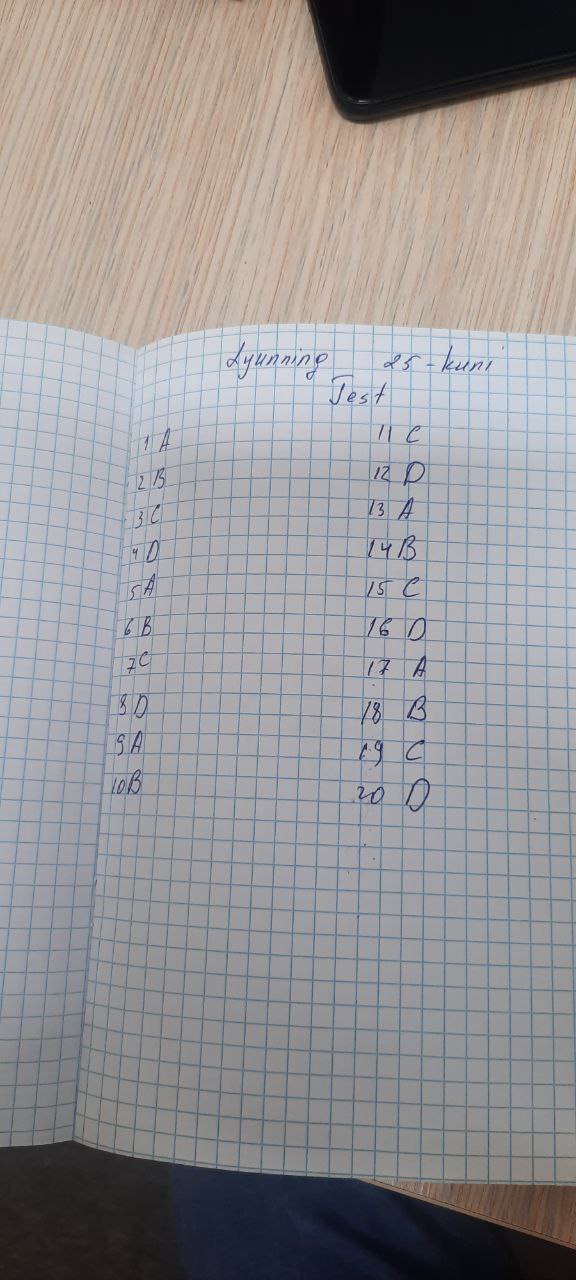 Iyunning 25-kuni
Test
1 A
2 B
3 C
4 D
5 A
6 B
7 C
8 D
9 A
10 B
11 C
12 D
13 A
14 B
15 C
16 D
17 A
18 B
19 C
20 D